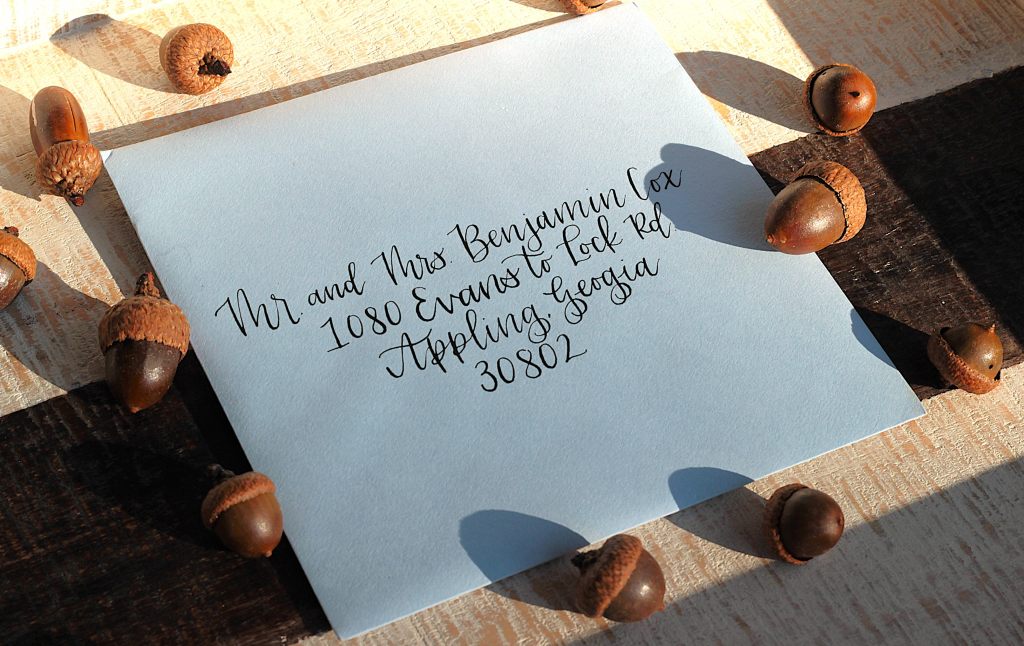 Mr. and Mrs. Benjamin Cox
1080 Evans to Lock Rd.
Appling, Geogia
30802